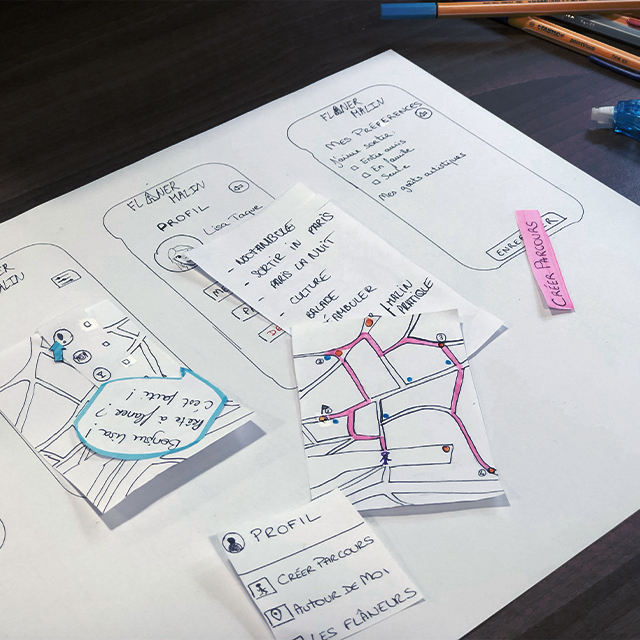 FLÂNER
MALIN
MES PRÉFÉRENCES
J'aime sortir:
Entre amis
En famille
Seule
Mes goûts artistiques
CRÉER PARCOURS
FLÂNER
MALIN
PROFIL
Lisa Taque
- NOCTAMBULE
- SORTIR IN PARIS
- PARIS LA NUIT
- CULTURE
- BALADE
MALIN
PRATIQUE
MALIN
Bonjour Lisa!
Prête à flâner ?
C'est parti !
PROFIL
CRÉER PARCOURS
AUTOUR DE MOI
LES FLÂNEURS